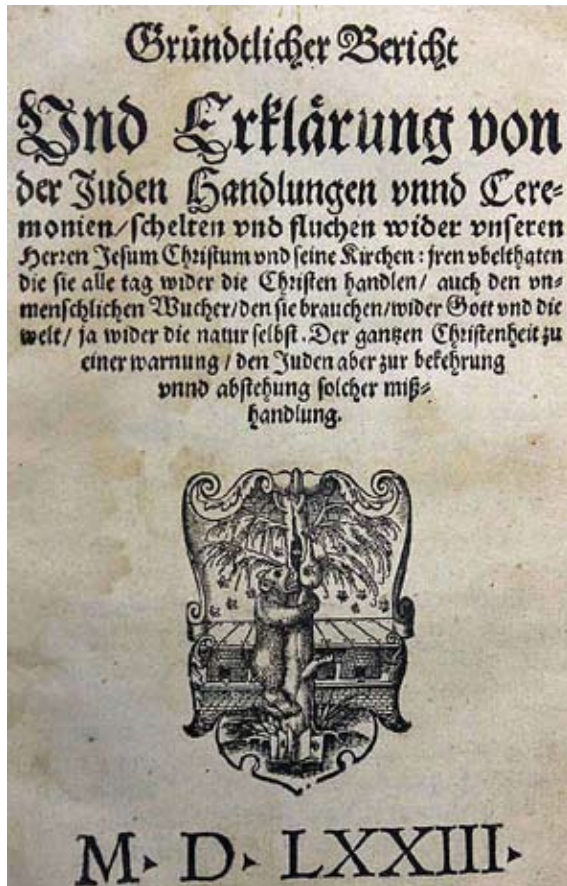 Gründtlicher Bericht
Vnd Erklärung von
der Juden Handlungen vnnd Cere⸗
monien/schelten vnd fluchen wider vnseren
Herren Jesum Christum vnd seine Kirchen: jren vbelthaten
die sie alle tag wider die Christen handlen/ auch den vn⸗
menschlichen Wucher/den sie brauchen/wider Gott vnd die
welt/ ja wider die natur selbst. Der gantzen Christenheit zu
einer warnung / den Juden aber zur bekehrung
vnnd abstehung solcher miß⸗
handlung.
M. D. LXXIII.